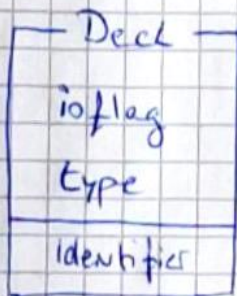 Decl
ioflag
type
identifier